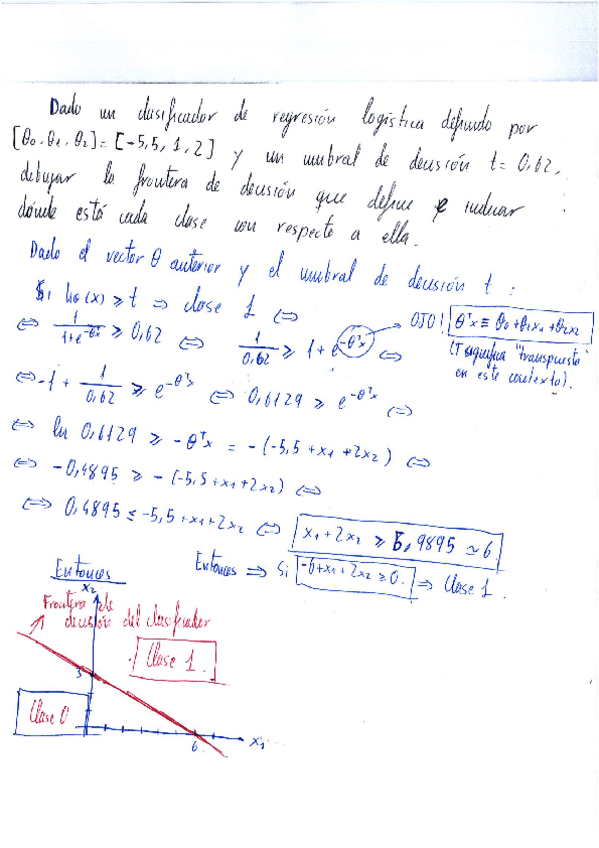 Dado un clasificador de regresión logística definido por
[θ₀, θ₁, θ₂] = [-5,5, 1, 2] y un umbral de decisión t = 0,62,
dibujar la frontera de decisión que define e indicar
dónde está cada clase con respecto a ella.
Dado el vector θ anterior y el umbral de decisión t :
Si hθ(x) ≥ t ⇒ clase 1 ⇔
⇔ 1/(1+e^(-θᵀx)) ≥ 0,62 ⇔ 1/0,62 ≥ 1 + e^(-θᵀx) ⇔
OJO! θᵀx ≡ θ₀ + θ₁x₁ + θ₂x₂
(T significa "transpuesto"
en este contexto).
⇔ -1 + 1/0,62 ≥ e^(-θᵀx) ⇔ 0,6129 ≥ e^(-θᵀx) ⇔
⇔ ln 0,6129 ≥ -θᵀx = -(-5,5 + x₁ + 2x₂) ⇔
⇔ -0,4895 ≥ -(-5,5 + x₁ + 2x₂) ⇔
⇔ 0,4895 ≤ -5,5 + x₁ + 2x₂ ⇔ x₁ + 2x₂ ≥ 5,9895 ≃ 6
Entonces ⇒ Si -6 + x₁ + 2x₂ ≥ 0. ⇒ Clase 1.
Entonces
x₂
Frontera de
decisión del clasificador
Clase 1.
3
Clase 0
6
x₁